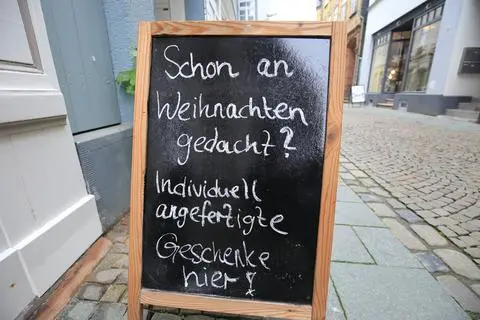 Schon an
Weihnachten
gedacht?
Individuell
angefertigte
Geschenke
hier!